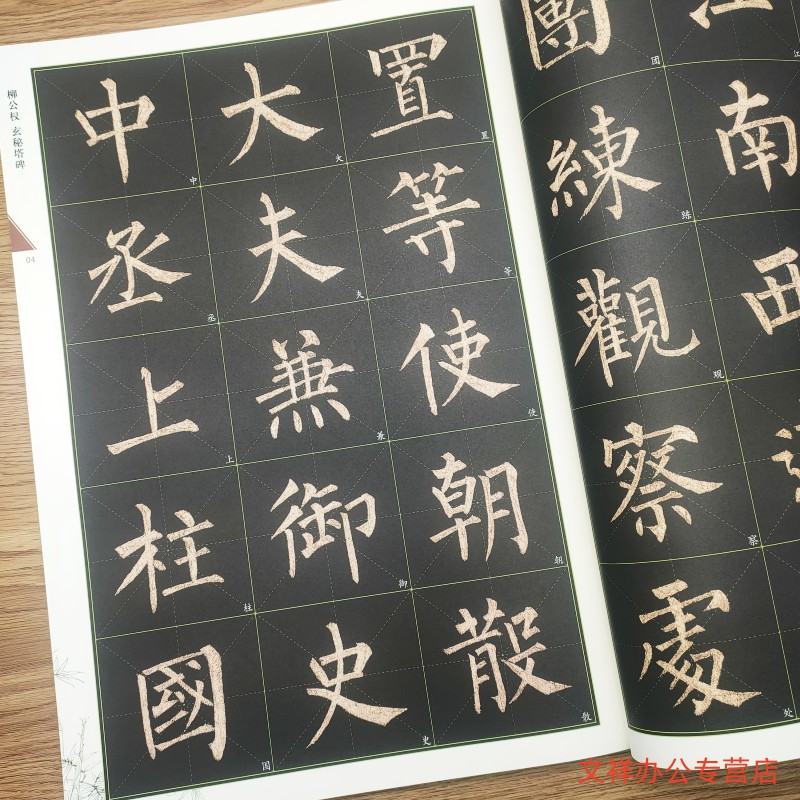 南西
團練觀察處
团练观察处
置等使朝散
置等使朝散
大夫兼御史
大夫兼御史
中丞上柱國
中丞上柱国
柳公权 玄秘塔碑
04
文祥办公专营店